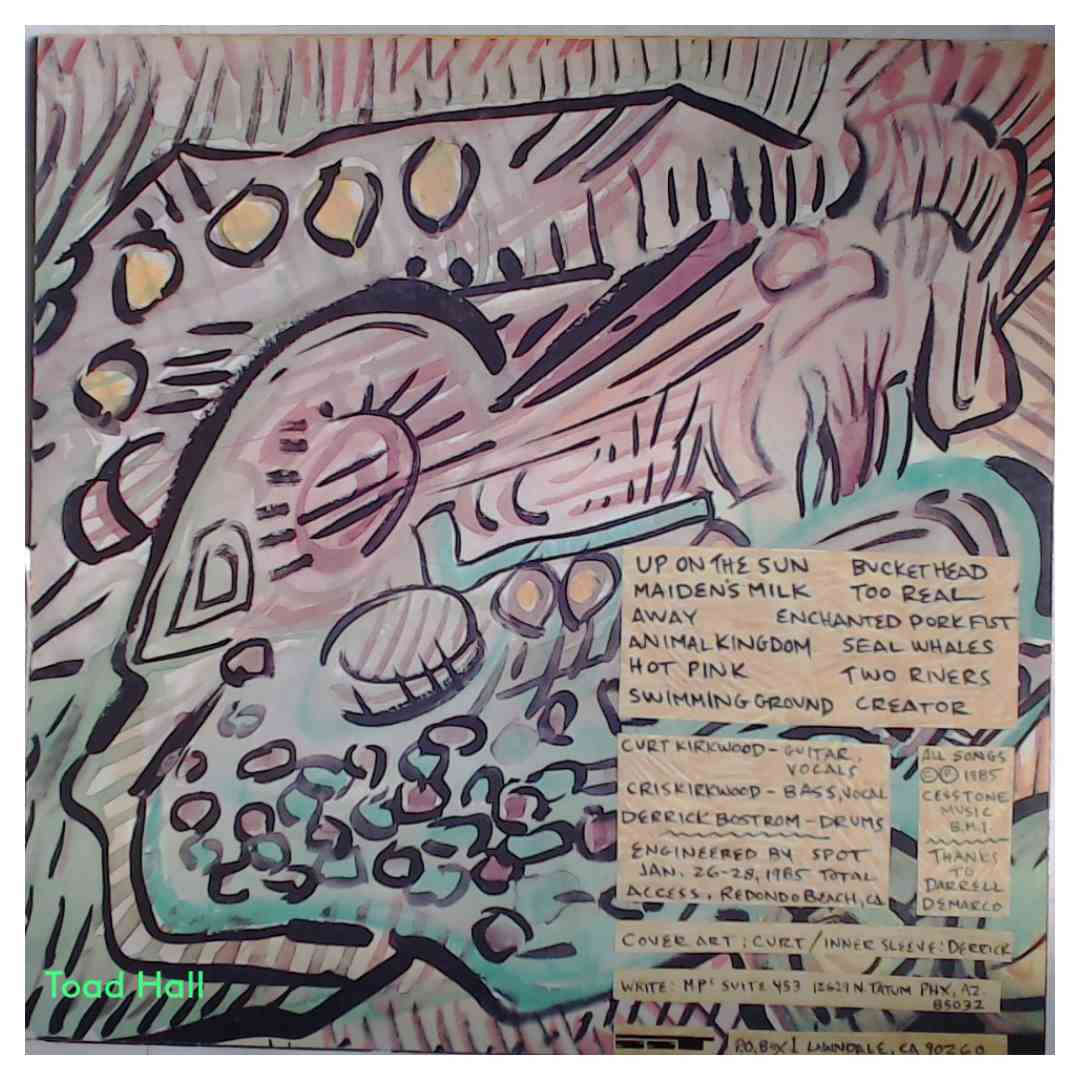 UP ON THE SUN BUCKETHEAD
MAIDEN'S MILK TOO REAL
AWAY ENCHANTED PORKFIST
ANIMAL KINGDOM SEAL WHALES
HOT PINK TWO RIVERS
SWIMMING GROUND CREATOR
CURT KIRKWOOD - GUITAR,
VOCALS
CRIS KIRKWOOD - BASS, VOCAL
DERRICK BOSTROM - DRUMS
ENGINEERED BY SPOT
JAN. 26-28, 1985 TOTAL
ACCESS, REDONDO BEACH, CA
ALL SONGS
©℗ 1985
CESSTONE
MUSIC
B.M.I.
THANKS
TO
DARRELL
DEMARCO
COVER ART: CURT / INNER SLEEVE: DERRICK
WRITE: MPS SUITE 453 12629 N. TATUM PHX, AZ.
85032
P.O. BOX 1 LAWNDALE, CA 90260
Toad Hall